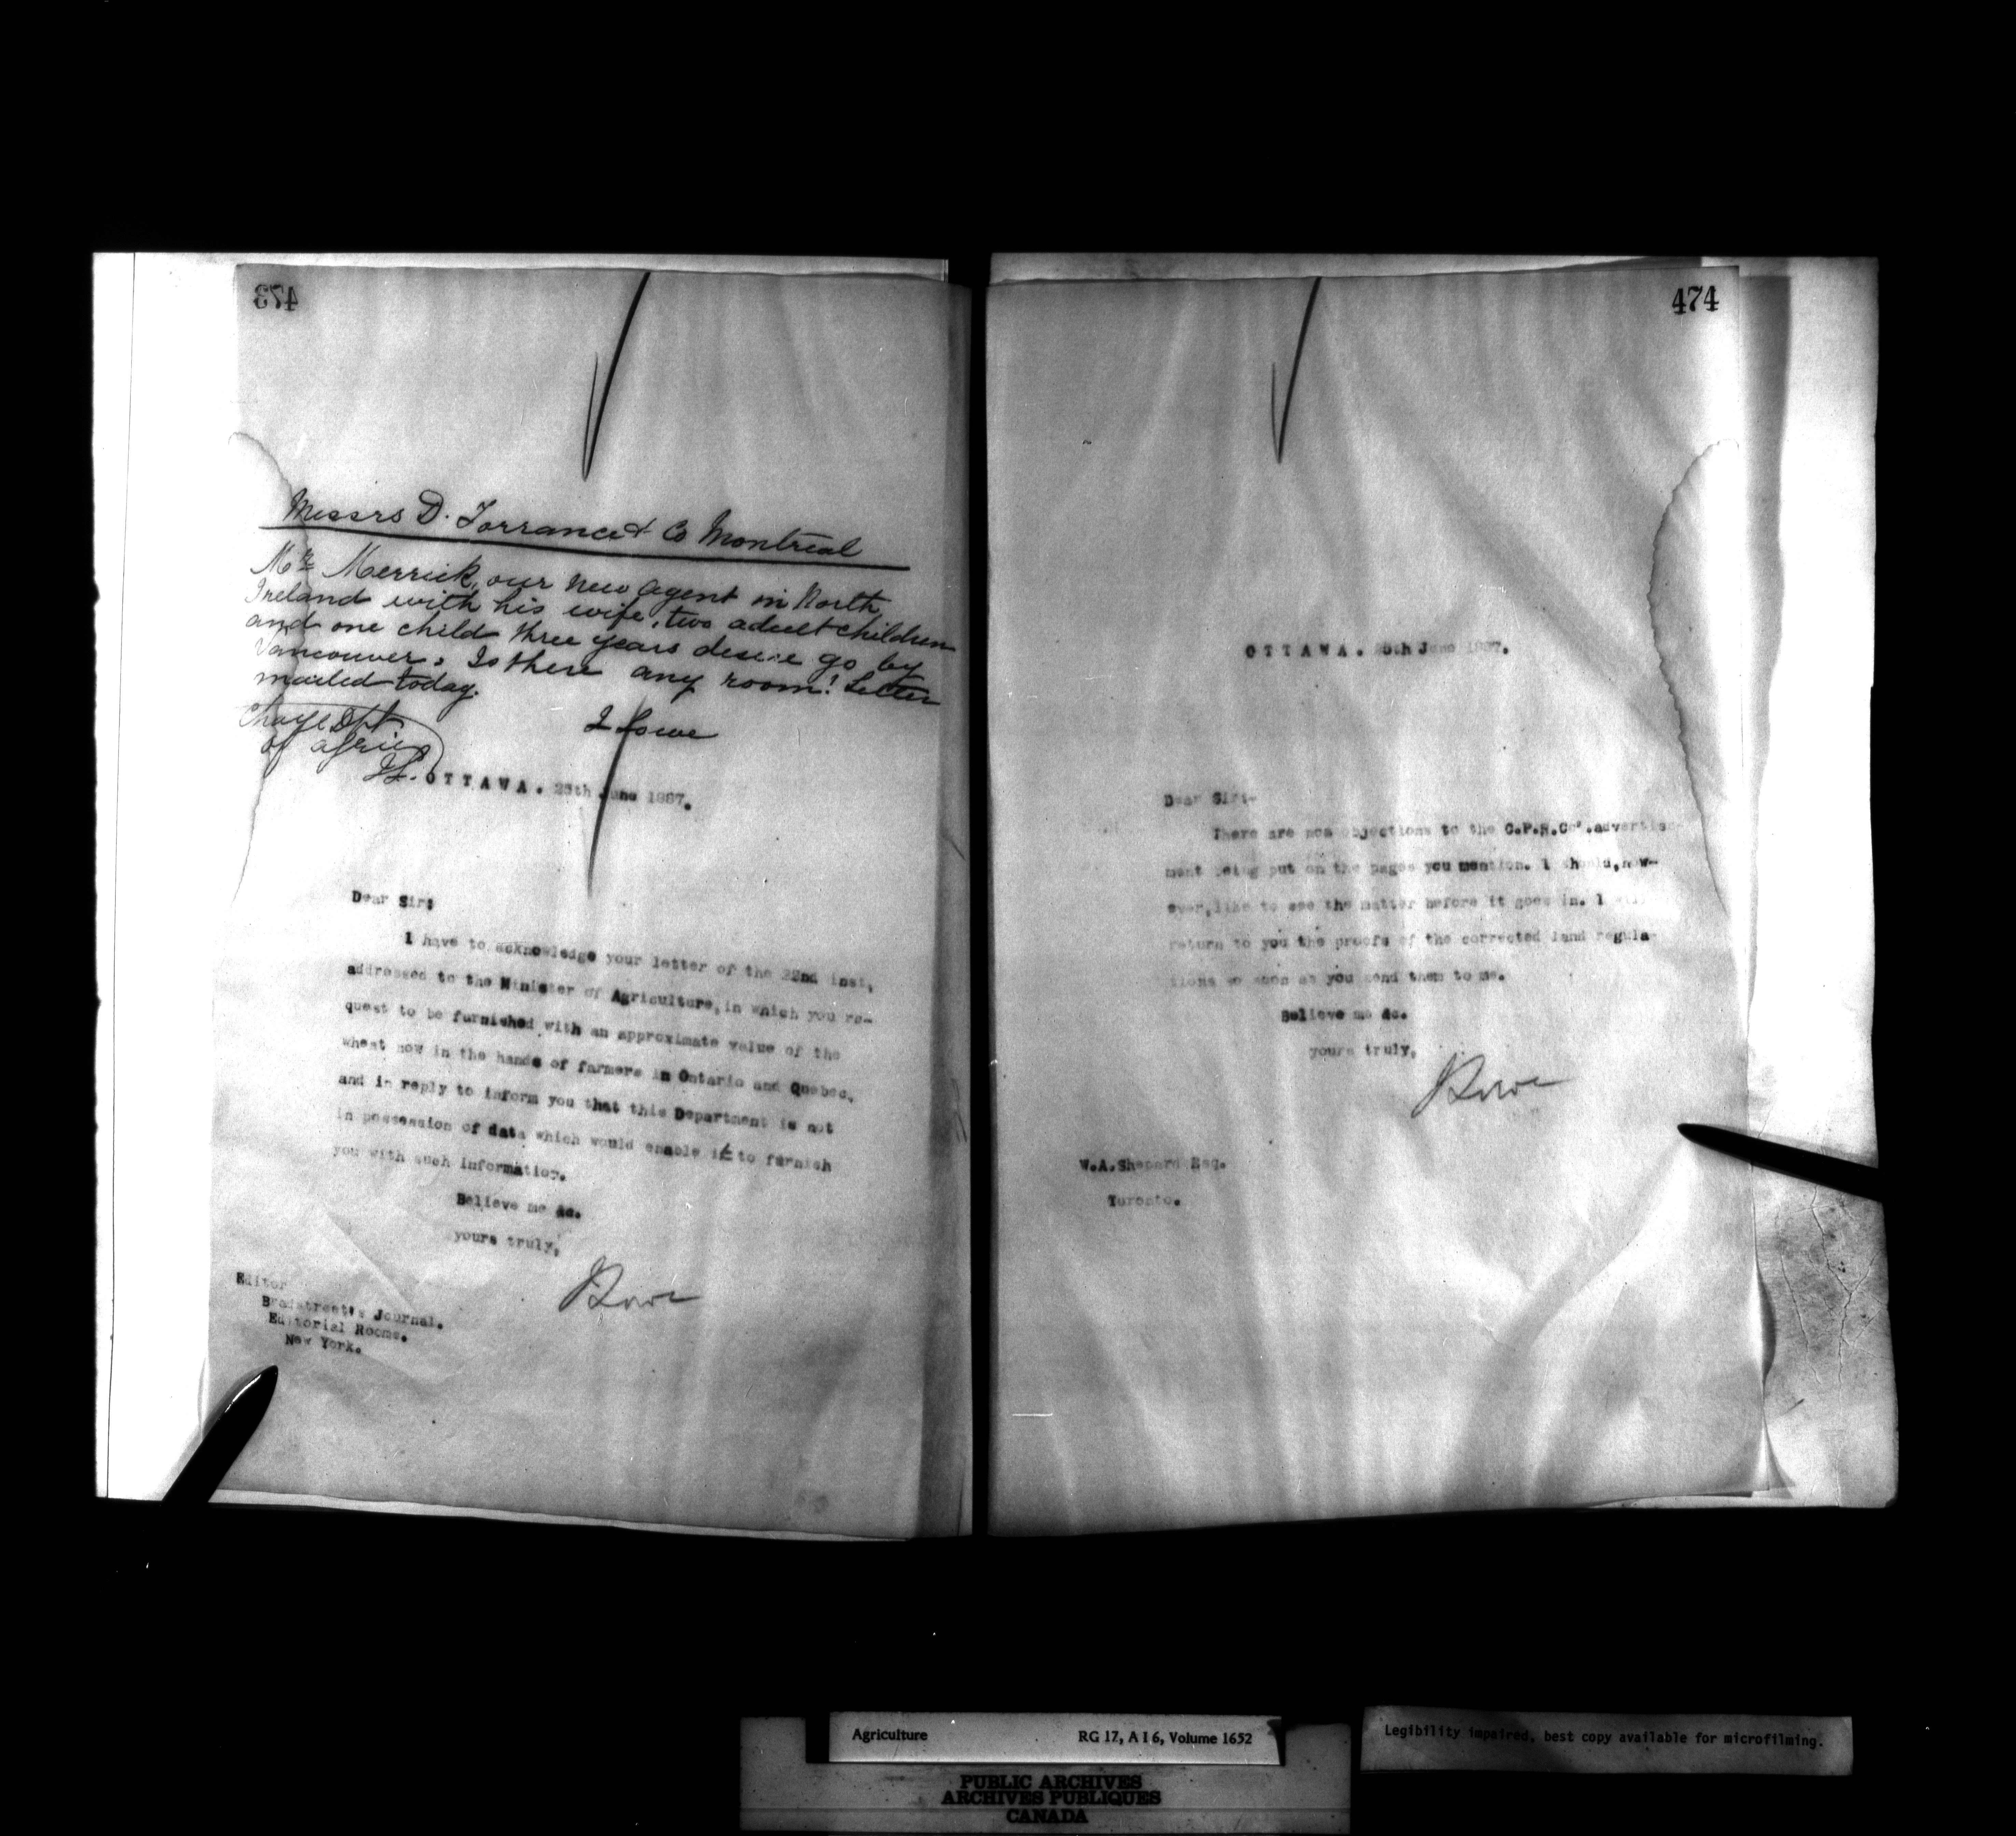 473
Messrs D. Torrance & Co Montreal
Mr. Merrick, our new agent in North
Ireland with his wife, two adult children
and one child three years desire go by
Vancouver. Is there any room? Letter
mailed today.
J Lowe
Charge Dpt
of Agric
J.L.
OTTAWA. 25th June 1887.
Dear Sir:
I have to acknowledge your letter of the 22nd inst,
addressed to the Minister of Agriculture, in which you re-
quest to be furnished with an approximate value of the
wheat now in the hands of farmers in Ontario and Quebec,
and in reply to inform you that this Department is not
in possession of data which would enable it to furnish
you with such information.
Believe me &c.
yours truly,
J Lowe
Editor
Bradstreet's Journal.
Editorial Rooms.
New York.
474
OTTAWA. 25th June 1887.
Dear Sir:-
There are no objections to the C.P.R.Co'.advertise-
ment being put on the pages you mention. I should,how-
ever,like to see the matter before it goes in. I will
return to you the proofs of the corrected land regula-
tions so soon as you send them to me.
Believe me &c.
yours truly,
J Lowe
W.A.Shepard Esq.
Toronto.
Agriculture RG 17, A I 6, Volume 1652
Legibility impaired, best copy available for microfilming.
PUBLIC ARCHIVES
ARCHIVES PUBLIQUES
CANADA